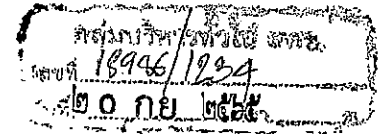 กลุ่มบริหารทั่วไป
เลขที่ 18946/1234
๒๐ กย ๒๕๖๕